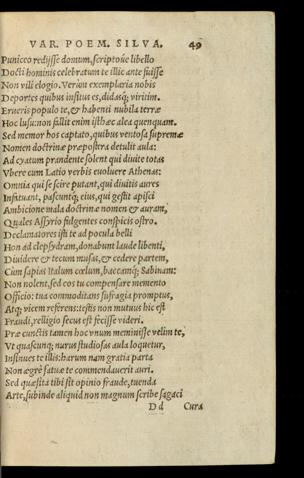 VAR. POEM. SILVA. 49
Puniceo redijsse domum, scriptoúe libello
Docti hominis celebratum te illic ante fuisse
Non vili elogio. Verùm exemplaria nobis
Deportes quibus insitus es, didasq; viritim.
Erueris populo te, & habenti nubila terræ
Hoc lusu: non fallit enim isthæc alea quenquam.
Sed memor hos captato, quibus ventosa supremæ
Nomen doctrinæ præpostera detulit aula:
Ad cyatum prandente solent qui diuite totas
Vbere cum Latio verbis euoluere Athenas:
Omnia qui se scire putant, qui diuitis aures
Insituant, pascuntq; eius, qui gestit apisci
Ambicione mala doctrinæ nomen & auram,
Quales Assyrio fidgentes conspicis ostro.
Declamatores isti te ad pocula belli
Hon ad clepsydram, donabunt laude libenti,
Diuidere & tecum musas, & cedere partem,
Cum sapias Italum cœlum, baccamq; Sabinam:
Non nolent, sed cos tu compensare memento
Officio: tua commoditans sufragia promptus,
Atq; vicem referens: testis non mutuus hic est
Fraudi, relligio secus est fecisse videri.
Præ cunctis tamen hoc vnum meminisse velim te,
Vt quascunq; nurus studiosas aula loquetur,
Insinues te illis: harum nam gratia parta
Non ægrè fatuæ te commendauerit auri.
Sed quæsita tibi sit opinio fraude, tuenda
Arte, subinde aliquid non magnum scribe sagaci
D d Cura